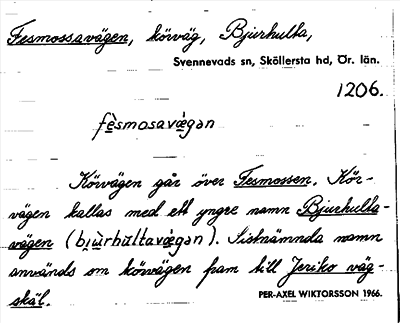 Fesmossavägen, körväg, Bjurhulta,
Svennevads sn, Sköllersta hd, Ör. län.
1206.
fèsmosavæ̀gan
Körvägen går över Fesmossen. Kör-
vägen kallas med ett yngre namn Bjurhulta-
vägen (bi̯ùrhultavæ̀gan). Sistnämnda namn
används om körvägen fram till Jeriko väg-
skäl.
PER-AXEL WIKTORSSON 1966.